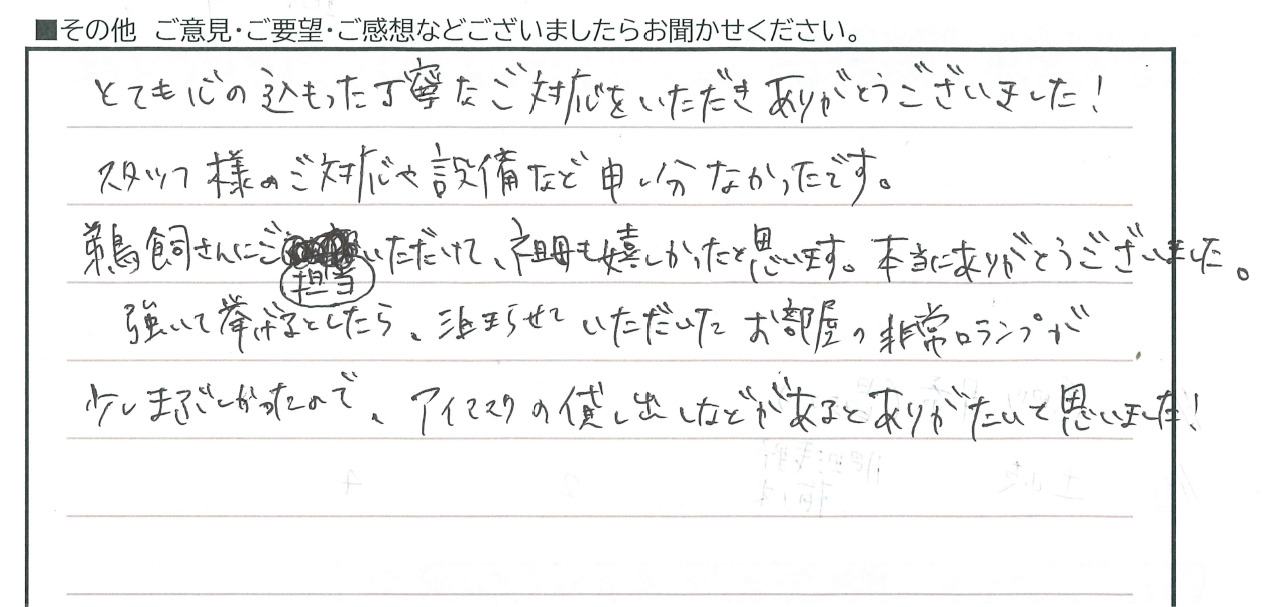 ■その他 ご意見・ご要望・ご感想などございましたらお聞かせください。
とても心の込もった丁寧なご対応をいただきありがとうございました!
スタッフ様のご対応や設備など申し分なかったです。
鵜飼さんにご担当いただけて、祖母も嬉しかったと思います。本当にありがとうございました。
強いて挙げるとしたら、泊まらせていただいたお部屋の非常口ランプが
少しまぶしかったので、アイマスクの貸し出しなどがあるとありがたいと思いました!